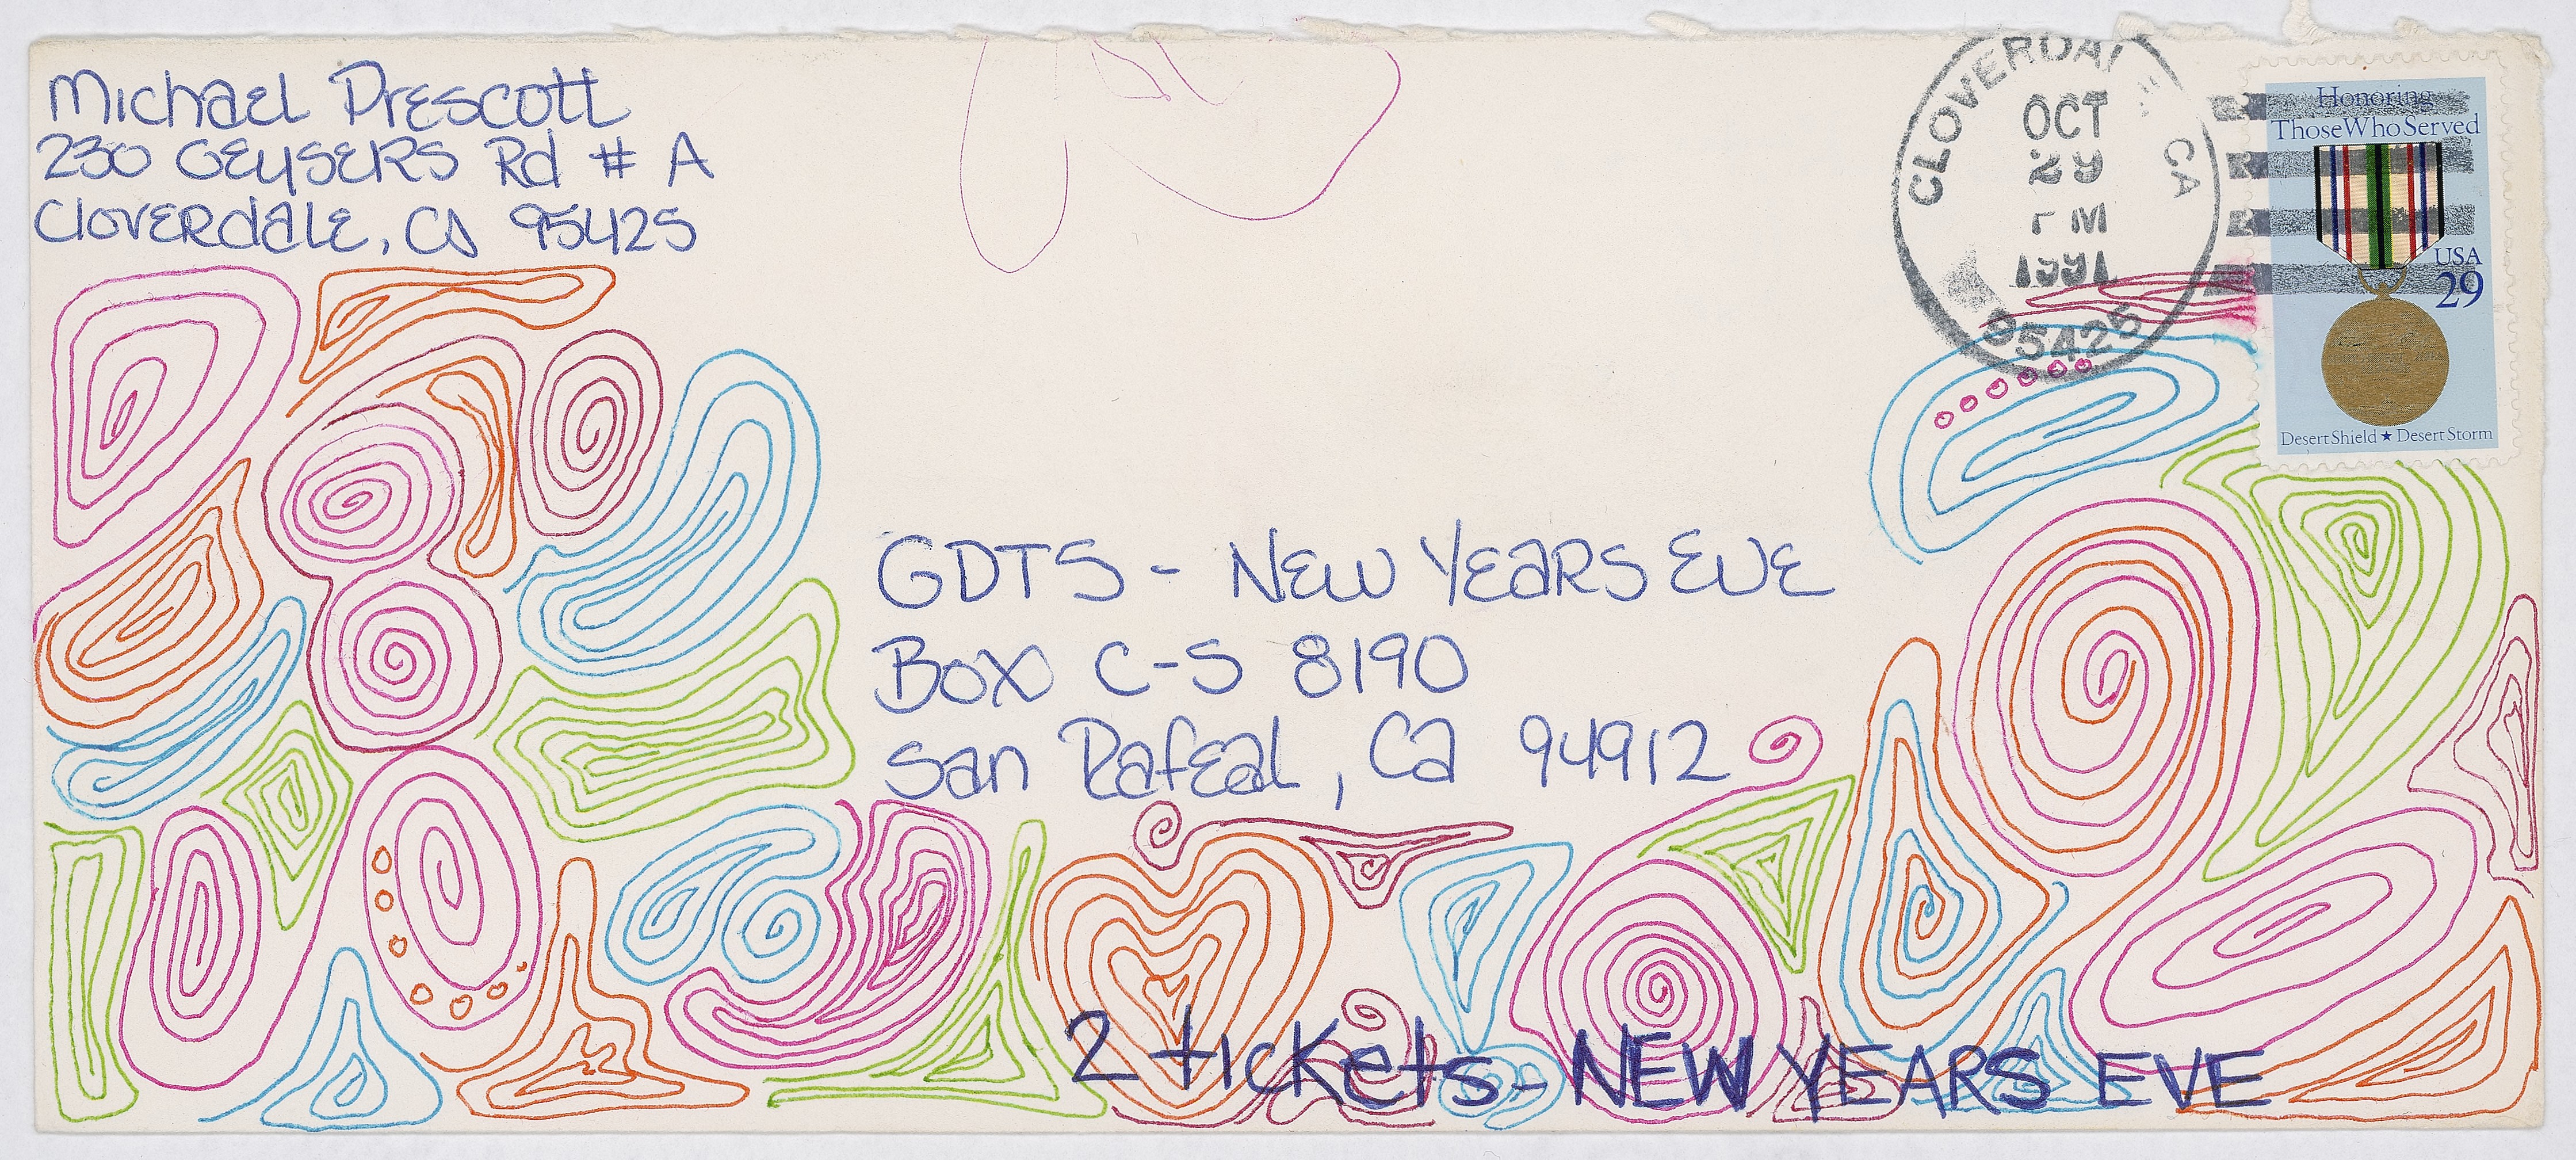 Michael Prescott
230 Geysers Rd # A
Cloverdale, Ca 95425
CLOVERDALE, CA
OCT
29
PM
1991
95425
Honoring
Those Who Served
USA
29
Desert Shield ★ Desert Storm
GDTS - New Years Eve
Box C-S 8190
San Rafeal, Ca 94912
2 tickets - NEW YEARS EVE